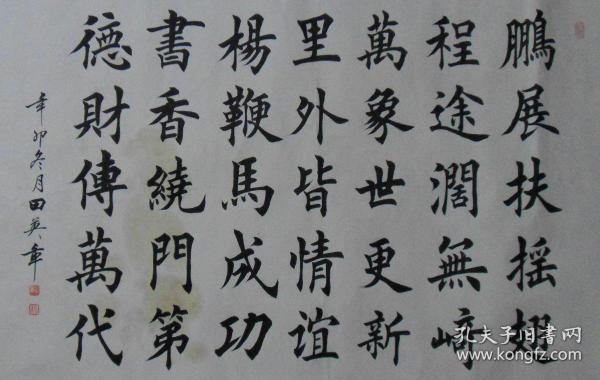 鵬展扶摇翅
程途濶無崎
萬象世更新
里外皆情誼
楊鞭馬成功
書香繞門第
德財傳萬代
辛卯冬月田英章
孔夫子旧书网
www.kongfz.com